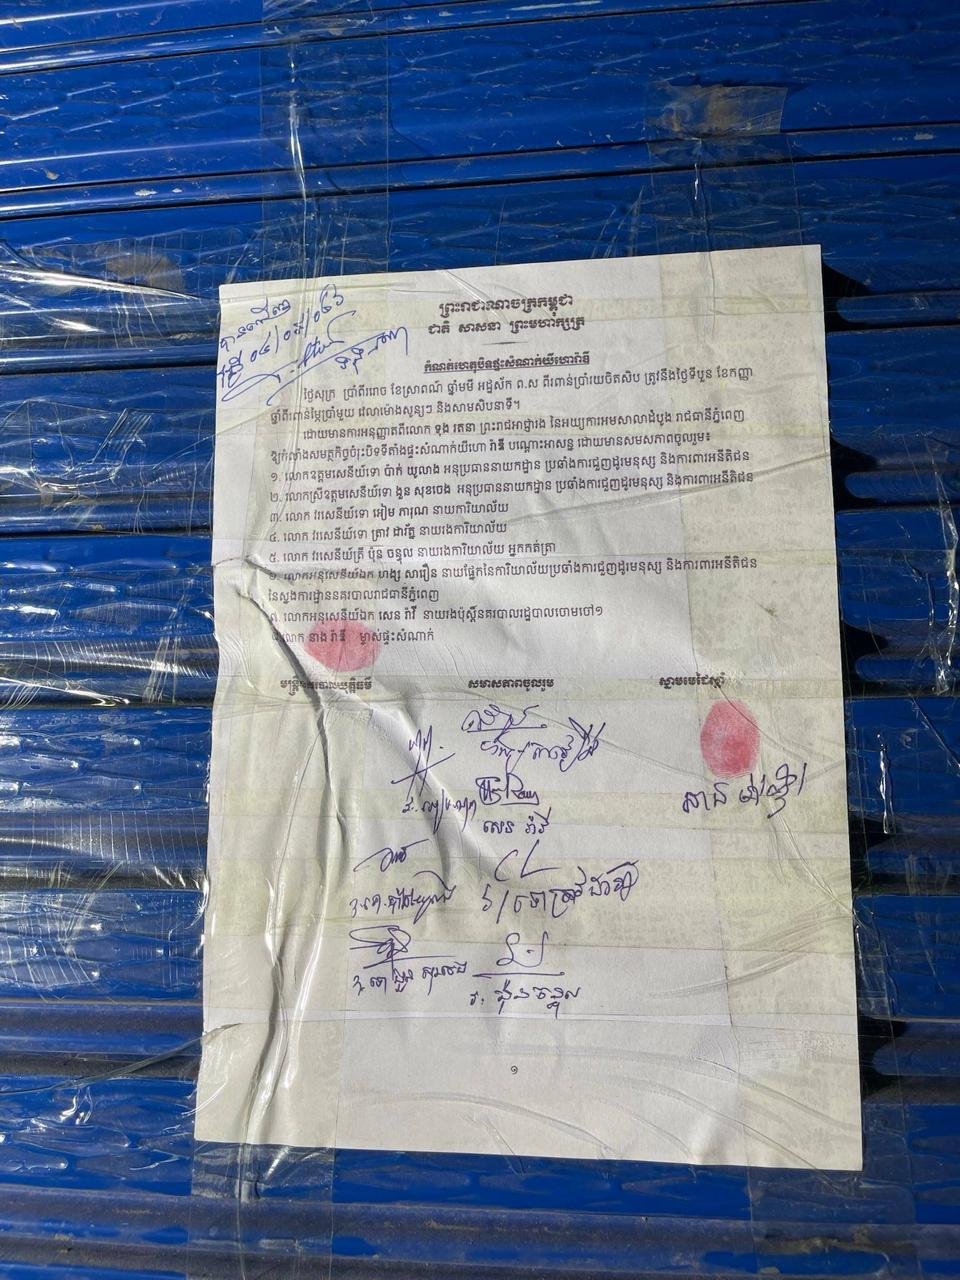 ព្រះរាជាណាចក្រកម្ពុជា
ជាតិ សាសនា ព្រះមហាក្សត្រ
កំណត់ហេតុបិទផ្ទះសំណាក់យីហោរ៉ាឌី
ថ្ងៃសុក្រ ប្រាំពីររោច ខែស្រាពណ៍ ឆ្នាំមមី អដ្ឋស័ក ព.ស ពីរពាន់ប្រាំរយចិតសិប ត្រូវនឹងថ្ងៃទីបួន ខែកញ្ញា
ឆ្នាំពីរពាន់ម្ភៃប្រាំមួយ វេលាម៉ោងសូន្យៗ និងសាមសិបនាទី។
ដោយមានការអនុញ្ញាតពីលោក ទុង រតនា ព្រះរាជអាជ្ញារង នៃអយ្យការអមសាលាដំបូង រាជធានីភ្នំពេញ
ឱ្យកំលាំងសមត្ថកិច្ចចុំរុះបិទទីតាំងផ្ទះសំណាក់យីហោ រ៉ាឌី បណ្តោះអាសន្ន ដោយមានសមសភាពចូលរួម៖
១. លោកឧត្តមសេនីយ៍ទោ ប៉ាក់ យូលាង អនុប្រធាននាយកដ្ឋាន ប្រឆាំងការជួញដូរមនុស្ស និងការពារអនីតិជន
២. លោកស្រីឧត្តមសេនីយ៍ទោ ងួន សុខចេង អនុប្រធាននាយកដ្ឋាន ប្រឆាំងការជួញដូរមនុស្ស និងការពារអនីតិជន
៣. លោក វរសេនីយ៍ទោ អៀម ភារុណ នាយការិយាល័យ
៤. លោក វរសេនីយ៍ទោ ត្រាវ ដារ័ត្ន នាយរងការិយាល័យ
៥. លោក វរសេនីយ៍ត្រី ប៉ុន ចន្ទុល នាយរងការិយាល័យ អ្នកកត់ត្រា
លោកអនុសេនីយ៍ឯក ហង្ស សាវឿន នាយផ្នែកនៃការិយាល័យប្រឆាំងការជួញដូរមនុស្ស និងការពារអនីតិជន
នៃស្នងការដ្ឋាននគរបាលរាជធានីភ្នំពេញ
៧. លោកអនុសេនីយ៍ឯក សេន រ៉ាវី នាយរងប៉ុស្តិ៍នគរបាលរដ្ឋបាលចោមចៅ១
លោក នាង រ៉ាឌី ម្ចាស់ផ្ទះសំណាក់
មន្ត្រីនគរបាលយុត្តិធម៌ សមាសភាពចូលរួម ស្នាមមេដៃស្តាំ
សេន រ៉ាវី
១